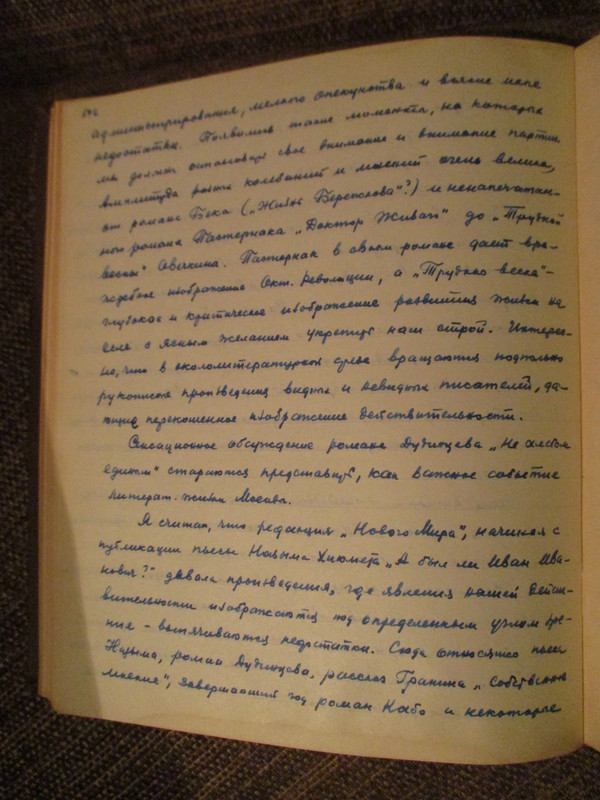 администрирования, мелкого опекунства и всякие иные
недостатки. Появились такие моменты, на которых
мы должны остановить свое внимание и внимание партии
Амплитуда колебаний и мнений очень велика,
от романа Бека („Жизнь Бережкова"?) и ненапечатан-
ного романа Пастернака „Доктор Живаго" до „Трудной
весны" Овечкина. Пастернак в своем романе дает вра-
ждебное изображение Окт. Революции, а „Трудная весна" -
глубокое и критическое изображение развития жизни на
селе с ясным желанием укрепить наш строй. Интерес-
но, что в окололитературной среде вращаются подпольно
рукописи произведения видных и невидных писателей, да-
ющие перекошенное изображение действительности.
Сенсационное обсуждение романа Дудинцева „Не хлебом
единым" стараются представить, как важное событие
литерат. жизни Москвы.
Я считал, что редакция „Нового Мира", начиная с
публикации пьесы Назыма Хикмета „А был ли Иван Ива-
нович?" давала произведения, где явления нашей дейст-
вительности изображаются под определенным углом зре-
ния - выпячиваются недостатки. Сюда относились пьеса
Назыма, роман Дудинцева, рассказ Гранина „Собственное
мнение", завершающий год роман Кабо и некоторые